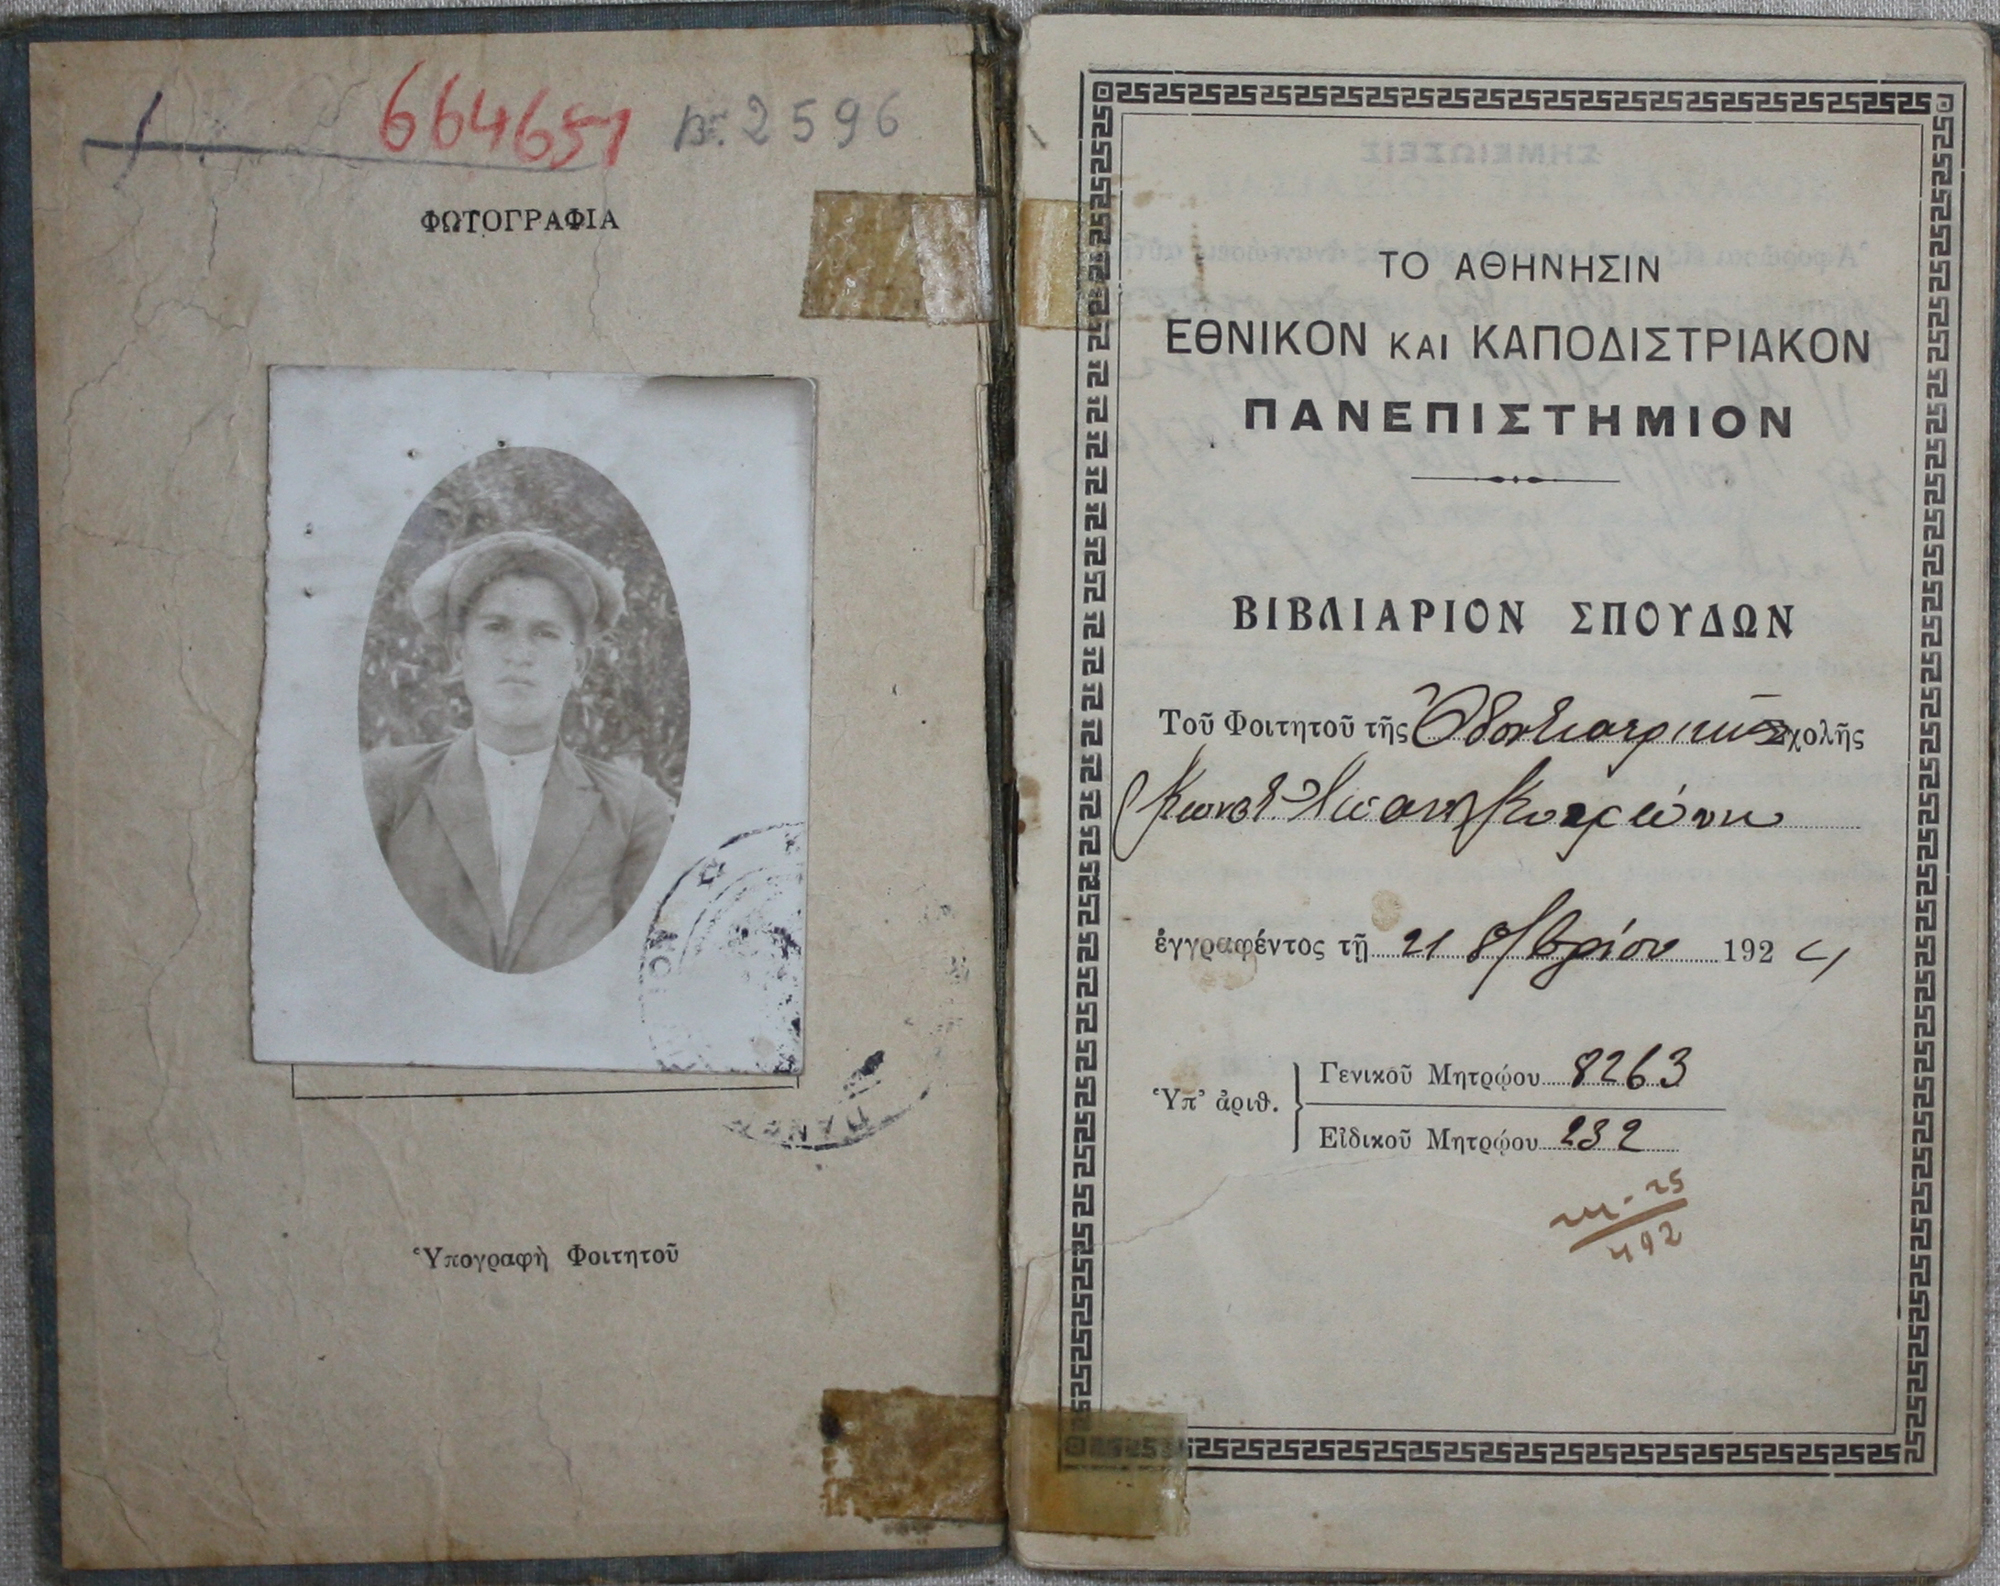 664651 Βτ. 2596
ΦΩΤΟΓΡΑΦΙΑ
Ὑπογραφὴ Φοιτητοῦ
ΤΟ ΑΘΗΝΗΣΙΝ
ΕΘΝΙΚΟΝ ΚΑΙ ΚΑΠΟΔΙΣΤΡΙΑΚΟΝ
ΠΑΝΕΠΙΣΤΗΜΙΟΝ
ΒΙΒΛΙΑΡΙΟΝ ΣΠΟΥΔΩΝ
Τοῦ Φοιτητοῦ τῆς Ὀδοντιατρικῆς Σχολῆς
Κωνστ.
ἐγγραφέντος τῇ 21 8/βρίου 1924
Ὑπ' ἀριθ.
Γενικοῦ Μητρῴου 8263
Εἰδικοῦ Μητρῴου 232
492